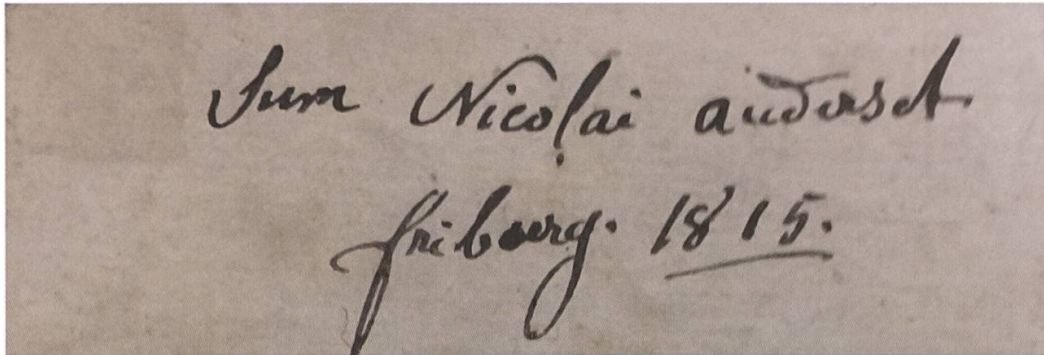 Sum Nicolai auderset
fribourg. 1815.